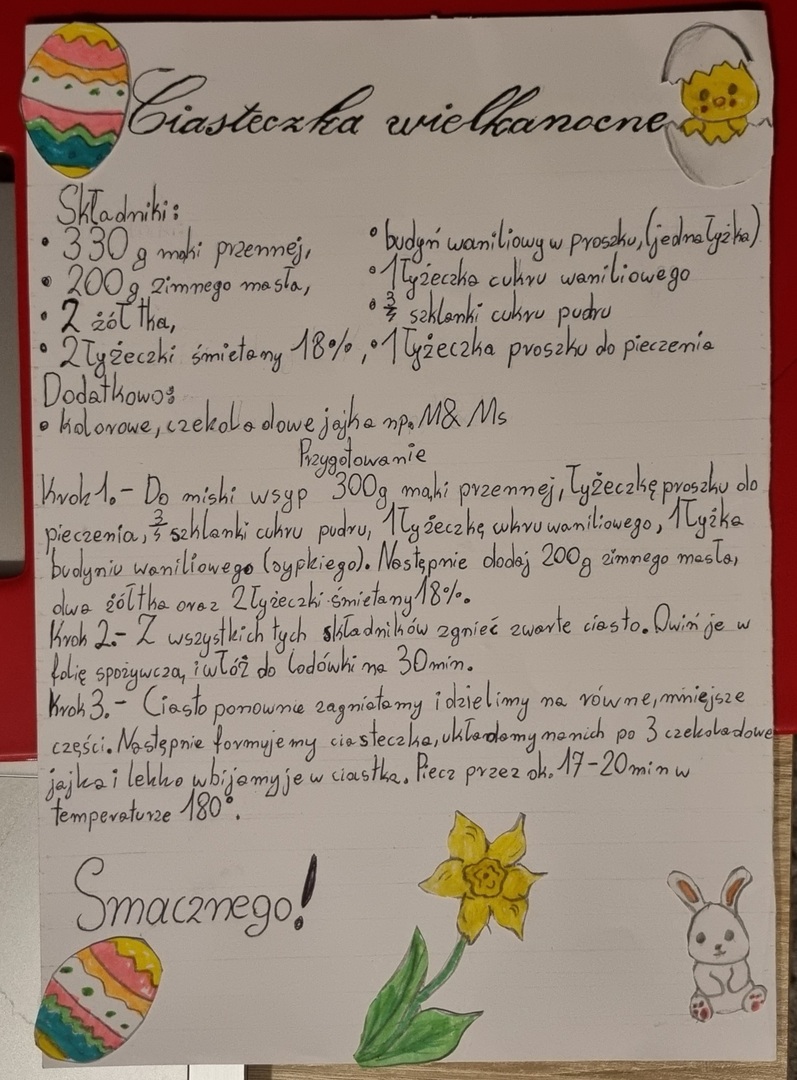 Ciasteczka wielkanocne
Składniki:
• 330 g mąki przennej,
• 200g zimnego masła,
• 2 żółtka,
• 2 łyżeczki śmietany 18%,
• budyń waniliowy w proszku, (jedna łyżka)
• 1 łyżeczka cukru waniliowego
• 3/4 szklanki cukru pudru
• 1 łyżeczka proszku do pieczenia
Dodatkowo:
• kolorowe, czekoladowe jajka np. M&Ms
Przygotowanie
Krok 1.- Do miski wsyp 300g mąki przennej, łyżeczkę proszku do
pieczenia, 3/4 szklanki cukru pudru, 1 łyżeczkę cukru waniliowego, 1 łyżka
budyniu waniliowego (sypkiego). Następnie dodaj 200g zimnego masła,
dwa żółtka oraz 2 łyżeczki śmietany 18%.
Krok 2.- Z wszystkich tych składników zgnieć zwarte ciasto. Owiń je w
folię spożywczą, i włóż do lodówki na 30min.
Krok 3.- Ciasto ponownie zagniatamy i dzielimy na równe, mniejsze
części. Następnie formujemy ciasteczka, układamy na nich po 3 czekoladowe
jajka i lekko wbijamy je w ciastka. Piecz przez ok. 17-20min w
temperaturze 180°.
Smacznego!